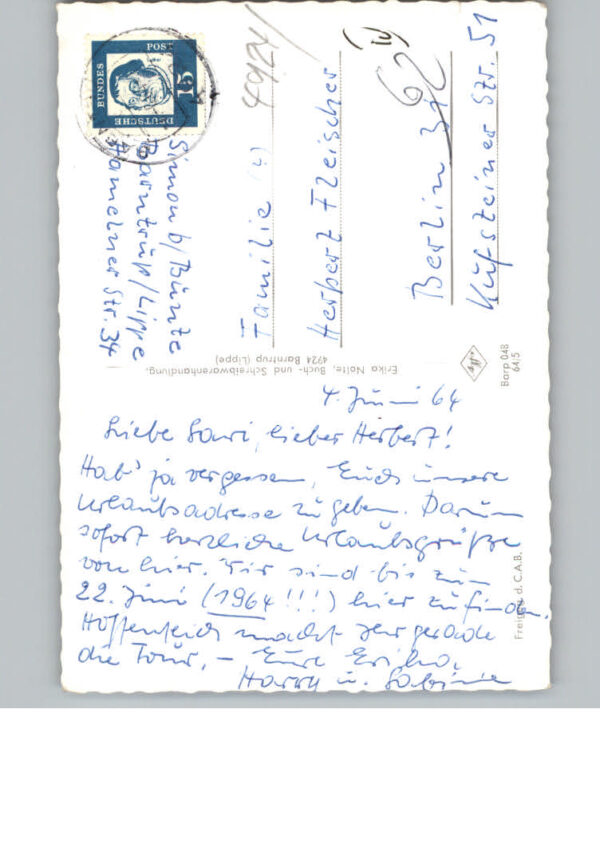 DEUTSCHE
BUNDES
POST
15
Simon b/Bünte
Barntrup/Lippe
Hamelner Str. 34
4924
Familie (4)
Herbert Fleischer
62
Berlin 31
Kufsteiner Str. 51
Erika Nolte, Buch- und Schreibwarenhandlung,
4924 Barntrup (Lippe)
Barp 048
64/5
Freigabe d. C.A.B.
4. Juni 64
Liebe Lauri, lieber Herbert!
Hab' ja vergessen, Euch unsere
Urlaubsadresse zu geben. Darum
sofort herzliche Urlaubsgrüße
von hier. Wir sind bis zum
22. Juni (1964 !!!) hier zu finden.
Hoffentlich macht Ihr gerade
die Tour. – Eure Erika,
Harry u. Sabine